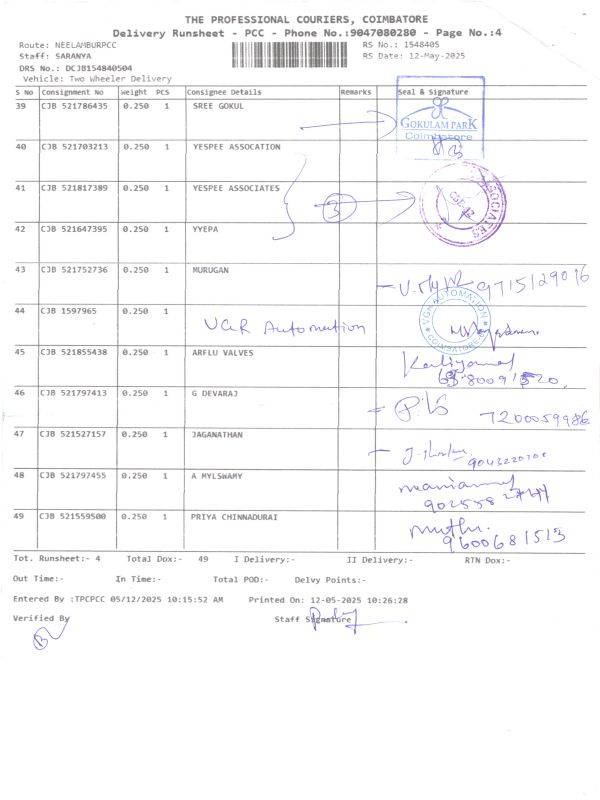 THE PROFESSIONAL COURIERS, COIMBATORE
Delivery Runsheet - PCC - Phone No.:9047080280 - Page No.:4
Route: NEELAMBURPCC RS No.: 1548405
Staff: SARANYA RS Date: 12-May-2025
DRS No.: DCJB154840504
Vehicle: Two Wheeler Delivery
S No Consignment No Weight PCS Consignee Details Remarks Seal & Signature
39 CJB 521786435 0.250 1 SREE GOKUL
GOKULAM PARK
Coimbatore
40 CJB 521703213 0.250 1 YESPEE ASSOCATION
41 CJB 521817389 0.250 1 YESPEE ASSOCIATES 3
42 CJB 521647395 0.250 1 YYEPA
43 CJB 521752736 0.250 1 MURUGAN 9715129016
44 CJB 1597965 0.250 1 VGR Automation
VGM AUTOMATION
COIMBATORE
45 CJB 521855438 0.250 1 ARFLU VALVES
46 CJB 521797413 0.250 1 G DEVARAJ 7200059986
47 CJB 521527157 0.250 1 JAGANATHAN
48 CJB 521797455 0.250 1 A MYLSWAMY
49 CJB 521559500 0.250 1 PRIYA CHINNADURAI Muthu.
9600681513
Tot. Runsheet:- 4 Total Dox:- 49 I Delivery:- II Delivery:- RTN Dox:-
Out Time:- In Time:- Total POD:- Delvy Points:-
Entered By :TPCPCC 05/12/2025 10:15:52 AM Printed On: 12-05-2025 10:26:28
Verified By Staff Signature